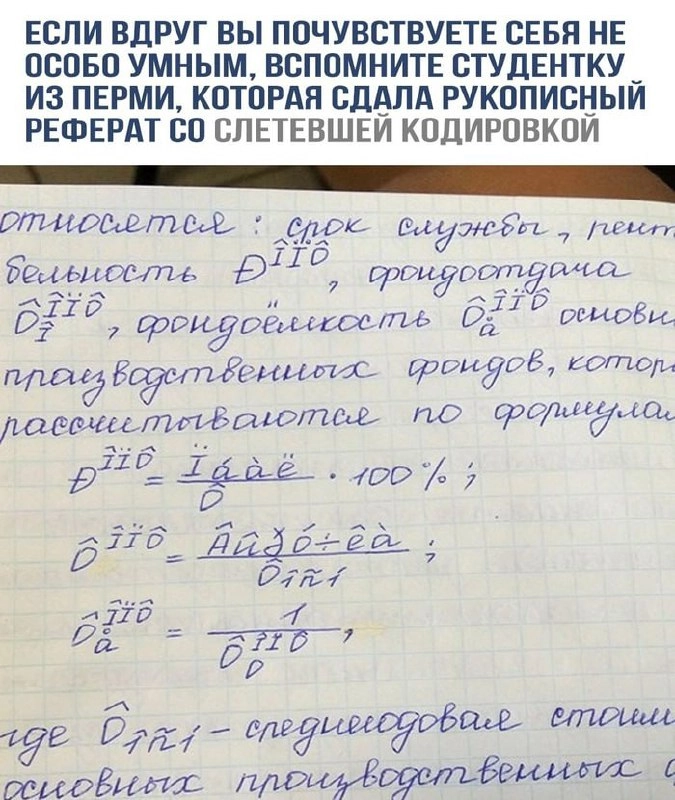 ЕСЛИ ВДРУГ ВЫ ПОЧУВСТВУЕТЕ СЕБЯ НЕ
ОСОБО УМНЫМ, ВСПОМНИТЕ СТУДЕНТКУ
ИЗ ПЕРМИ, КОТОРАЯ СДАЛА РУКОПИСНЫЙ
РЕФЕРАТ СО СЛЕТЕВШЕЙ КОДИРОВКОЙ
относятся: срок службы, рент
бельность Ð ÎÏÔ, фондоотдача
Ô ÎÏÔ Î, фондоёмкость Ô ÎÏÔ å основн
производственных фондов, котор
рассчитываются по формулам
Ð ÎÏÔ = Ïáàë / Ô · 100%;
Ô ÎÏÔ = Âûðó÷êà / Ôîñí;
Ô ÎÏÔ å = 1 / Ô ÎÏÔ О,
где Ôîñí - среднегодовая стоим
основных производственных ф